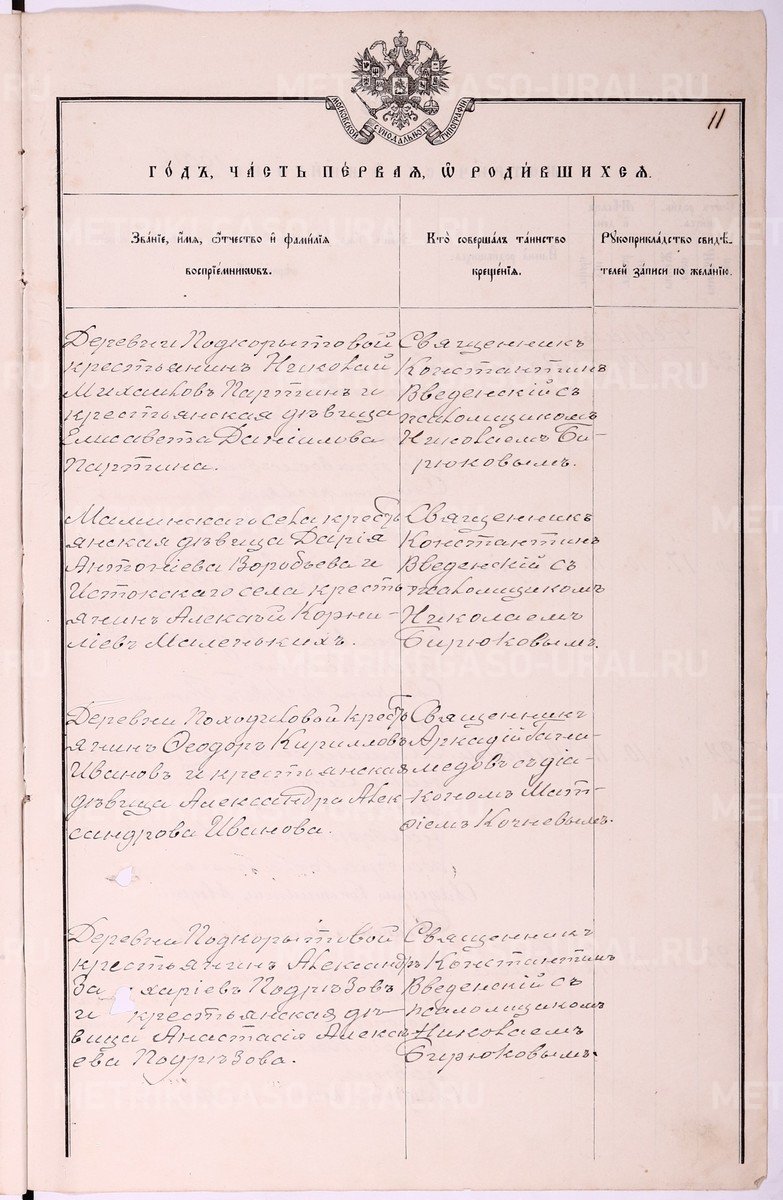 METRIKI.GASO-URAL.RU
МОСКОВСКОЙ СѴНОДАЛЬНОЙ ТИПОГРАФІИ
11
ГО́ДЪ, ЧА́СТЬ ПЕ́РВАЯ, Ѡ҆ РОДИ́ВШИХСЯ.
Зва́нїе, и҆́мя, ѻ҆́тчество и҆ фами́лїя
воспрїе́мниковъ.
Кто̀ соверша́лъ та́инство
креще́нїя.
Рꙋкоприкла́дство свидѣ́-
телей за́писи по жела́нїю.
Деревни Подкорытовой
крестьянинъ Николай
Михаиловъ Партинъ и
крестьянская дѣвица
Елисавета Даніилова
Партина.
Священникъ
Константинъ
Введенскій съ
псаломщикомъ
Николаемъ Би-
рюковымъ.
Маминскаго села кресть
янская дѣвица Дарія
Антоніева Воробьева и
Истокскаго села кресть
янинъ Алексѣй Корни-
ліевъ Маленькихъ.
Священникъ
Константинъ
Введенскій съ
псаломщикомъ
Николаемъ
Бирюковымъ.
Деревни Походиловой кресть
янинъ Ѳеодоръ Кирилловъ
Ивановъ и крестьянская
дѣвица Александра Алек
сандрова Иванова.
Священникъ
Аркадій
съ діа-
кономъ Мат-
ѳіемъ Кочневымъ.
Деревни Подкорытовой
крестьянинъ Александръ
Захаріевъ Подрѣзовъ
и крестьянская дѣ-
вица Анастасія Алекса
ева Подрѣзова.
Священникъ
Константинъ
Введенскій съ
псаломщикомъ
Николаемъ
Бирюковымъ.